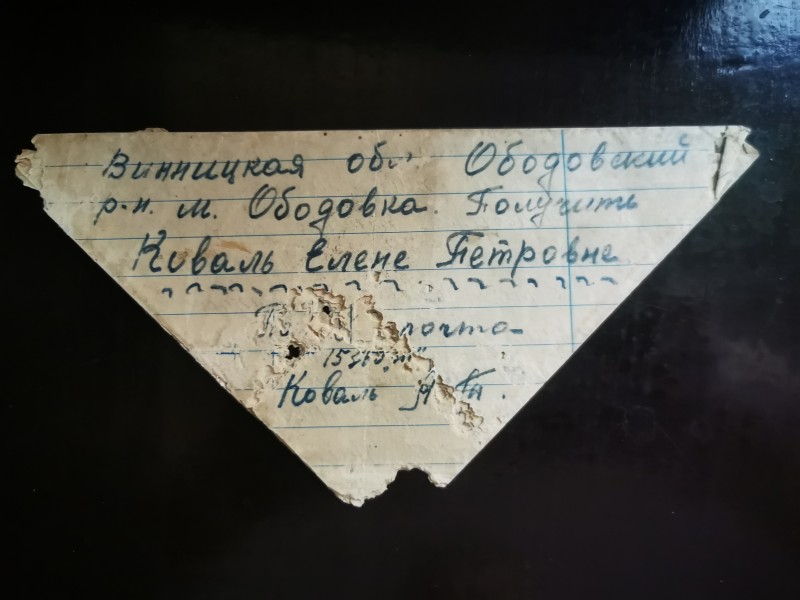 Винницкая обл Ободовский
р-н. м. Ободовка. Получить
Коваль Елене Петровне
почта
Коваль А